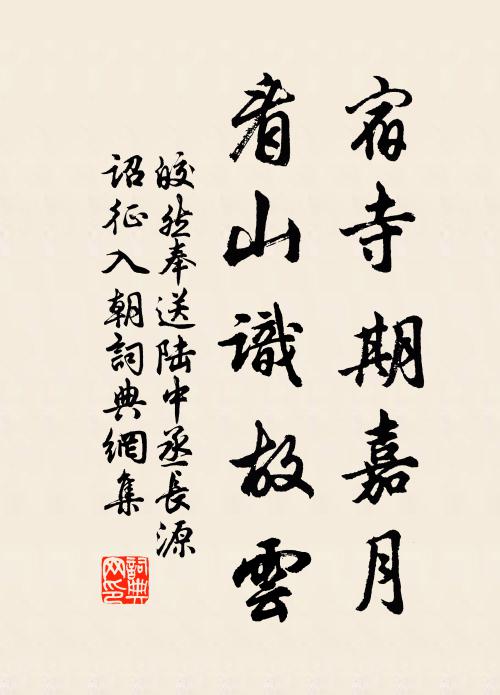 宿寺期嘉月
看山識故雲
皎然奉送陸中丞長源
詔征入朝詞典網集
詞典网印